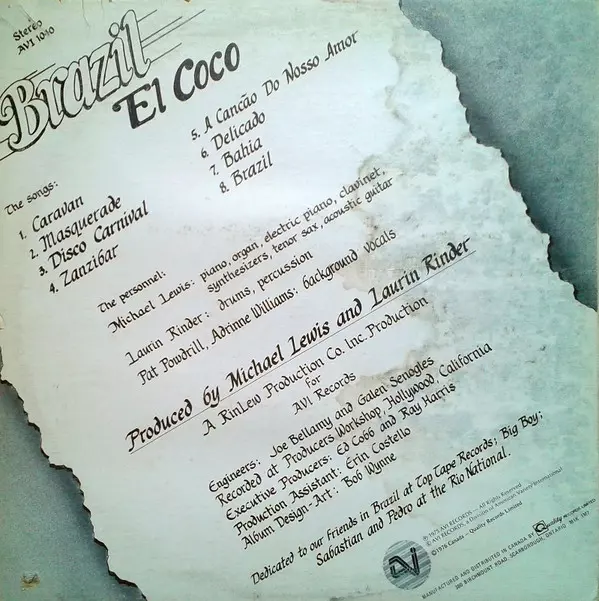 Stereo
AVI 1040
Brazil
El Coco
The songs:
1. Caravan
2. Masquerade
3. Disco Carnival
4. Zanzibar
5. A Cancão Do Nosso Amor
6. Delicado
7. Bahia
8. Brazil
The personnel:
Michael Lewis: piano, organ, electric piano, clavinet,
synthesizers, tenor sax, acoustic guitar
Laurin Rinder: drums, percussion
Pat Powdrill, Adrinne Williams: background vocals
Produced by Michael Lewis and Laurin Rinder
A RinLew Production Co. Inc. Production
for
AVI Records
Engineers: Joe Bellamy and Galen Senogles
Recorded at Producers Workshop, Hollywood, California
Executive Producers: Ed Cobb and Ray Harris
Production Assistant: Erin Costello
Album Design-Art: Bob Wynne
Dedicated to our friends in Brazil at Top Tape Records; Big Boy;
Sabastian and Pedro at the Rio National.
avi
℗ 1975 AVI RECORDS — All Rights Reserved
© AVI RECORDS, a Division of American Variety International
©1976 Canada — Quality Records Limited
MANUFACTURED AND DISTRIBUTED IN CANADA BY Quality RECORDS LIMITED
380 BIRCHMOUNT ROAD, SCARBOROUGH, ONTARIO M1K 1M7